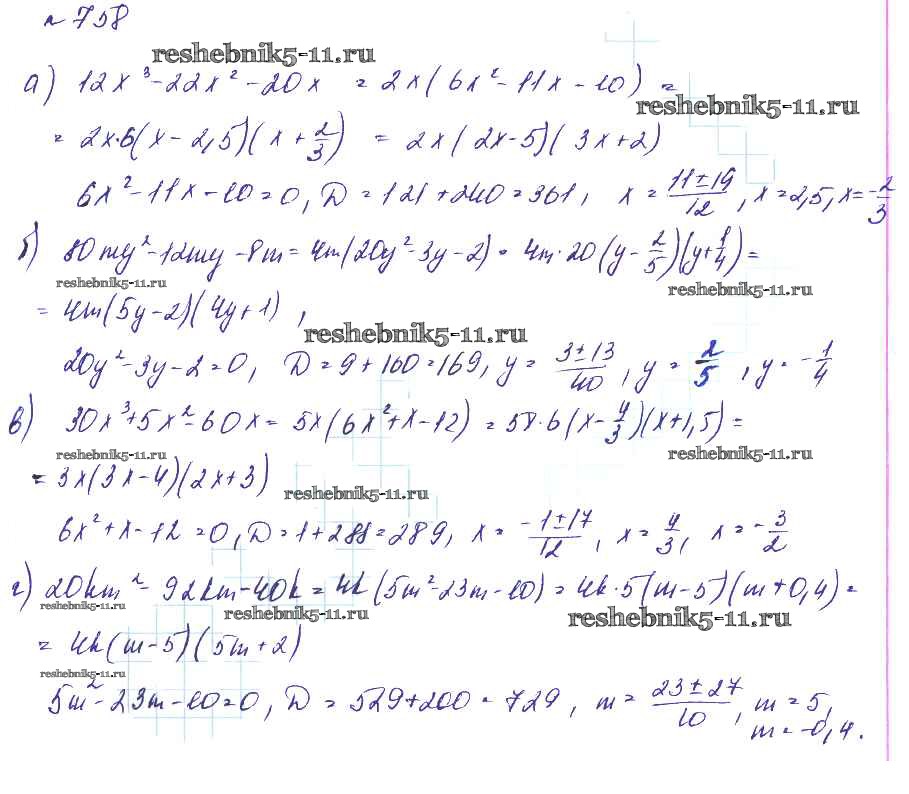 № 758
reshebnik5-11.ru
а) 12x³-22x²-20x = 2x(6x²-11x-10) =
reshebnik5-11.ru
= 2x·6(x-2,5)(x+2/3) = 2x(2x-5)(3x+2)
6x²-11x-10=0, D=121+240=361, x=(11±19)/12, x=2,5, x=-2/3
б) 80my²-12my-8m=4m(20y²-3y-2)=4m·20(y-2/5)(y+1/4)=
reshebnik5-11.ru reshebnik5-11.ru
= 4m(5y-2)(4y+1),
reshebnik5-11.ru
20y²-3y-2=0, D=9+160=169, y=(3±13)/40, y=2/5, y=-1/4
в) 30x³+5x²-60x=5x(6x²+x-12)=5x·6(x-4/3)(x+1,5)=
reshebnik5-11.ru reshebnik5-11.ru
= 3x(3x-4)(2x+3)
reshebnik5-11.ru
6x²+x-12=0, D=1+288=289, x=(-1±17)/12, x=4/3, x=-3/2
г) 20km²-92km-40k=4k(5m²-23m-10)=4k·5(m-5)(m+0,4)=
reshebnik5-11.ru reshebnik5-11.ru reshebnik5-11.ru
= 4k(m-5)(5m+2)
reshebnik5-11.ru
5m²-23m-10=0, D=529+200=729, m=(23±27)/10, m=5,
m=-0,4.